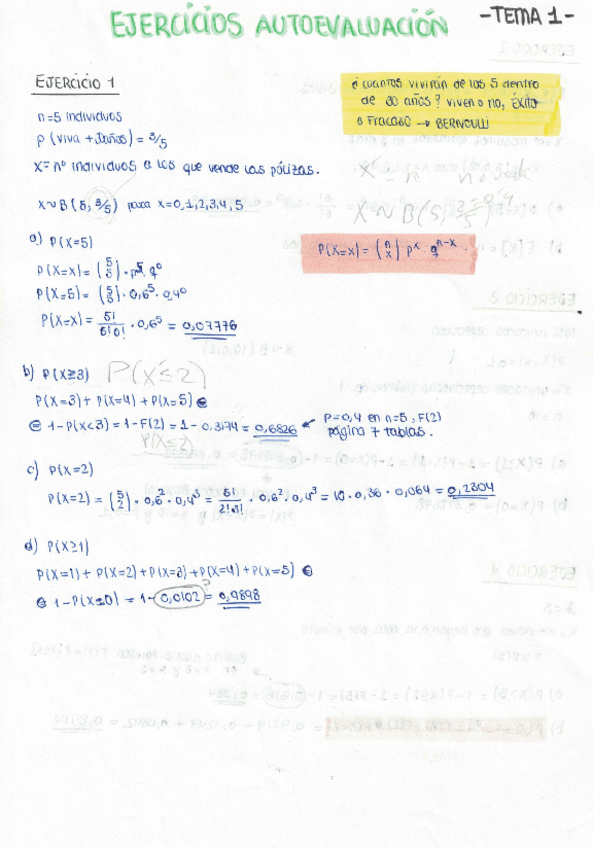 EJERCICIOS AUTOEVALUACIÓN -TEMA 1-
EJERCICIO 1
¿cuantos vivirán de los 5 dentro
de 30 años? viven o no, ÉXITO
o FRACASO → BERNOULLI
n=5 individuos
p (viva +30años) = 3/5
X= nº individuos a los que vende las pólizas.
X∼B(5, 3/5) para x=0,1,2,3,4,5
X∼B(5,
P(X=x) = (n x) p^x · q^(n-x)
a) P(X=5)
P(X=x) = (5 5) · p^5 · q^0
P(X=5) = (5 5) · 0,6^5 · 0,4^0
P(X=x) = 5!/5!0! · 0,6^5 = 0,07776
b) P(X≥3) P(X≤2)
P(X=3) + P(X=4) + P(X=5) =
= 1-P(X<3) = 1-F(2) = 1 - 0,3174 = 0,6826 ← P=0,4 en n=5, F(2)
página 7 tablas.
P(X≤2)
c) P(X=2)
P(X=2) = (5 2) · 0,6^2 · 0,4^3 = 5!/2!3! · 0,6^2 · 0,4^3 = 10 · 0,36 · 0,064 = 0,2304
d) P(X≥1)
P(X=1) + P(X=2) + P(X=3) + P(X=4) + P(X=5) =
= 1-P(X≤0) = 1- 0,0102 ? = 0,9898